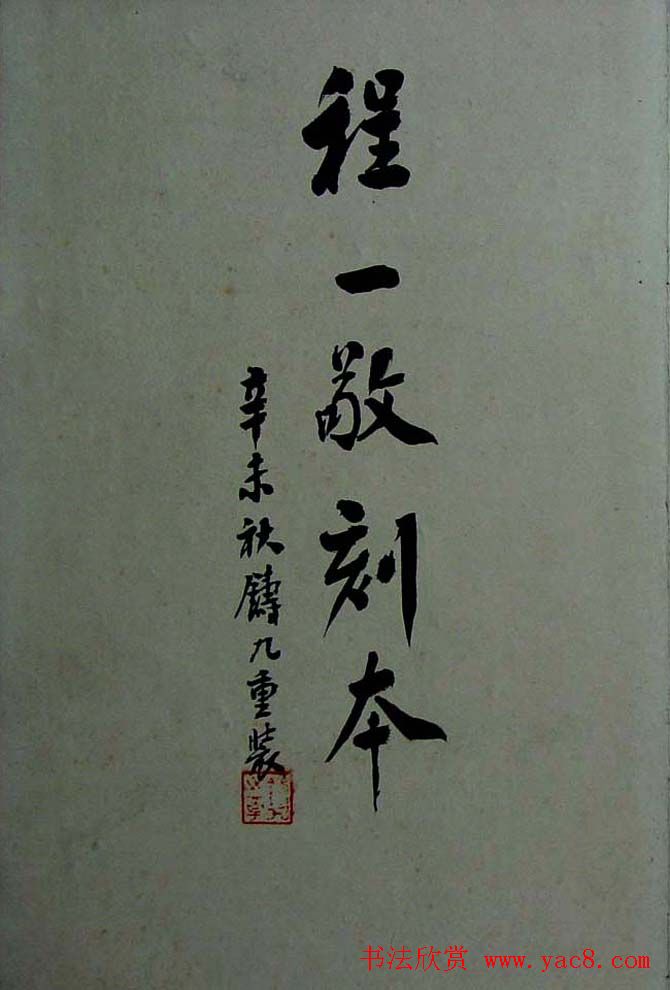 程一敬刻本
辛未秋鑄九重裝
书法欣赏 www.yac8.com